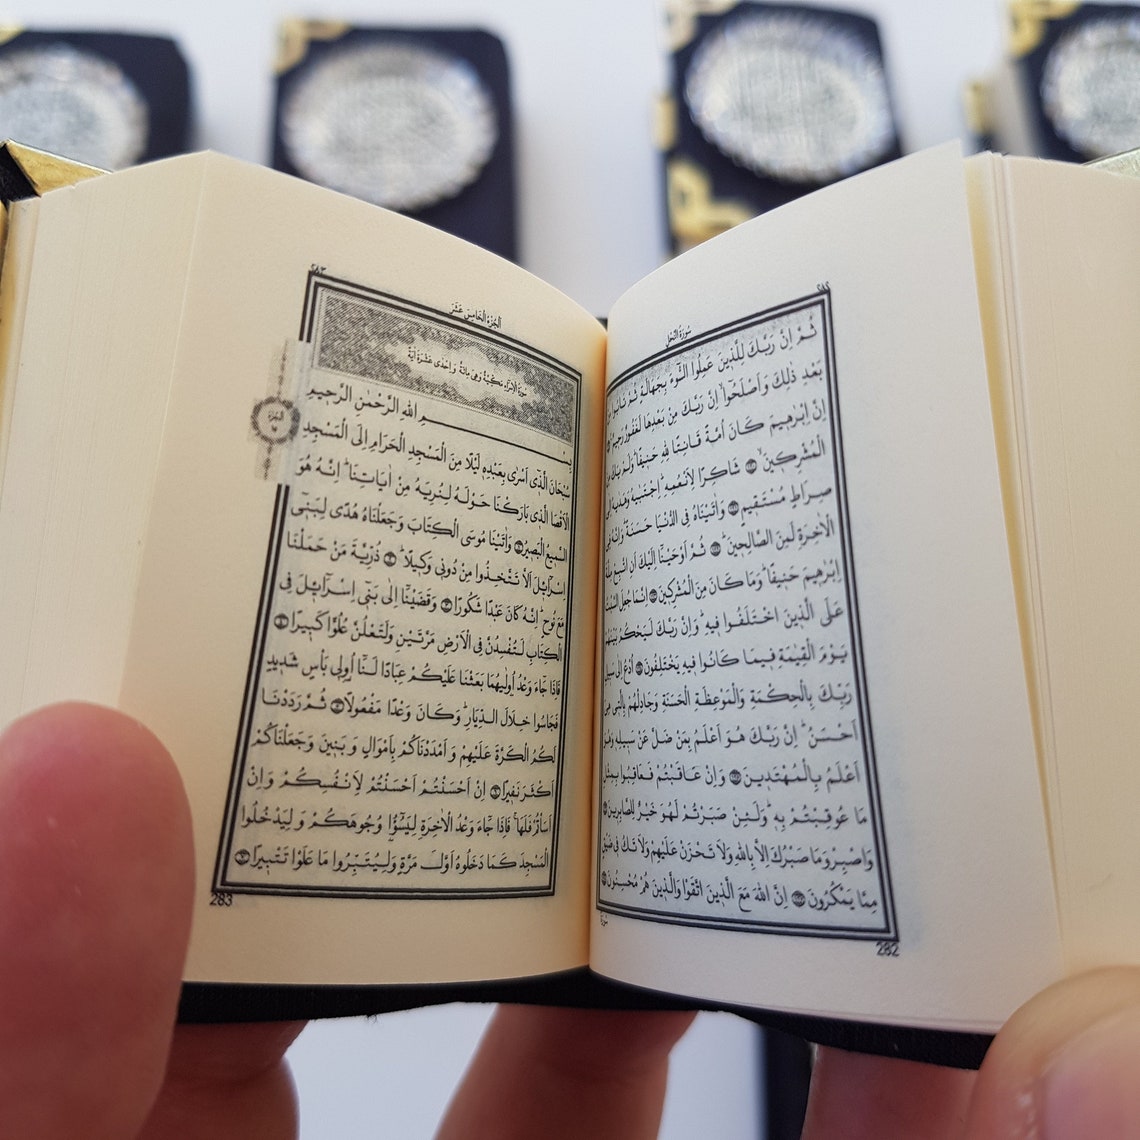 ٢٨٢
سُورَةُ النَّحْلِ
ثُمَّ اِنَّ رَبَّكَ لِلَّذ۪ينَ عَمِلُوا السُّٓوءَ بِجَهَالَةٍ ثُمَّ تَابُوا
بَعْدِ ذٰلِكَ وَاَصْلَحُٓوا اِنَّ رَبَّكَ مِنْ بَعْدِهَا لَغَفُورٌ رَح۪يمٌ
اِنَّ اِبْرٰه۪يمَ كَانَ اُمَّةً قَانِتًا لِلّٰهِ حَن۪يفًاۜ وَلَمْ يَكُ
الْمُشْرِك۪ينَۙ شَاكِرًا لِاَنْعُمِهِۜ اِجْتَبٰيهُ وَهَدٰيهُ اِلٰى
صِرَاطٍ مُسْتَق۪يمٍ وَاٰتَيْنَاهُ فِي الدُّنْيَا حَسَنَةًۜ وَاِنَّهُ فِي
الْاٰخِرَةِ لَمِنَ الصَّالِح۪ينَۜ ثُمَّ اَوْحَيْنَٓا اِلَيْكَ اَنِ اتَّبِعْ مِلَّةَ
اِبْرٰه۪يمَ حَن۪يفًاۜ وَمَا كَانَ مِنَ الْمُشْرِك۪ينَ اِنَّمَا جُعِلَ السَّبْتُ
عَلَى الَّذ۪ينَ اخْتَلَفُوا ف۪يهِۜ وَاِنَّ رَبَّكَ لَيَحْكُمُ بَيْنَهُمْ
يَوْمَ الْقِيٰمَةِ ف۪يمَا كَانُوا ف۪يهِ يَخْتَلِفُونَ اُدْعُ اِلٰى سَب۪يلِ
رَبِّكَ بِالْحِكْمَةِ وَالْمَوْعِظَةِ الْحَسَنَةِ وَجَادِلْهُمْ بِالَّت۪ي هِيَ
اَحْسَنُۜ اِنَّ رَبَّكَ هُوَ اَعْلَمُ بِمَنْ ضَلَّ عَنْ سَب۪يلِه۪ وَهُوَ
اَعْلَمُ بِالْمُهْتَد۪ينَ وَاِنْ عَاقَبْتُمْ فَعَاقِبُوا بِمِثْلِ
مَا عُوقِبْتُمْ بِه۪ۜ وَلَئِنْ صَبَرْتُمْ لَهُوَ خَيْرٌ لِلصَّابِر۪ينَ
وَاصْبِرْ وَمَا صَبْرُكَ اِلَّا بِاللّٰهِ وَلَا تَحْزَنْ عَلَيْهِمْ وَلَا تَكُ ف۪ي ضَيْقٍ
مِمَّا يَمْكُرُونَ اِنَّ اللّٰهَ مَعَ الَّذ۪ينَ اتَّقَوْا وَالَّذ۪ينَ هُمْ مُحْسِنُونَ
282
٢٨٣
اَلْجُزْءُ الْخَامِسَ عَشَرَ
سُورَةُ الْاِسْرَاءِ مَكِّيَّةٌ وَهِيَ مِائَةٌ وَاِحْدٰى عَشْرَةَ اٰيَةً
بِسْمِ اللّٰهِ الرَّحْمٰنِ الرَّح۪يمِ
سُبْحَانَ الَّذ۪ٓي اَسْرٰى بِعَبْدِه۪ لَيْلًا مِنَ الْمَسْجِدِ الْحَرَامِ اِلَى الْمَسْجِدِ
الْاَقْصَا الَّذ۪ي بَارَكْنَا حَوْلَهُ لِنُرِيَهُ مِنْ اٰيَاتِنَاۜ اِنَّهُ هُوَ
السَّم۪يعُ الْبَص۪يرُ وَاٰتَيْنَا مُوسَى الْكِتَابَ وَجَعَلْنَاهُ هُدًى لِبَن۪ٓي
اِسْرَٓائ۪لَ اَلَّا تَتَّخِذُوا مِنْ دُون۪ي وَك۪يلًاۜ ذُرِّيَّةَ مَنْ حَمَلْنَا
مَعَ نُوحٍۜ اِنَّهُ كَانَ عَبْدًا شَكُورًا وَقَضَيْنَٓا اِلٰى بَن۪ٓي اِسْرَٓائ۪لَ فِي
الْكِتَابِ لَتُفْسِدُنَّ فِي الْاَرْضِ مَرَّتَيْنِ وَلَتَعْلُنَّ عُلُوًّا كَب۪يرًا
فَاِذَا جَٓاءَ وَعْدُ اُو۫لٰيهُمَا بَعَثْنَا عَلَيْكُمْ عِبَادًا لَنَٓا اُو۬ل۪ي بَأْسٍ شَد۪يدٍ
فَجَاسُوا خِلَالَ الدِّيَارِۜ وَكَانَ وَعْدًا مَفْعُولًا ثُمَّ رَدَدْنَا
لَكُمُ الْكَرَّةَ عَلَيْهِمْ وَاَمْدَدْنَاكُمْ بِاَمْوَالٍ وَبَن۪ينَ وَجَعَلْنَاكُمْ
اَكْثَرَ نَف۪يرًا اِنْ اَحْسَنْتُمْ اَحْسَنْتُمْ لِاَنْفُسِكُمْ وَاِنْ
اَسَأْتُمْ فَلَهَاۜ فَاِذَا جَٓاءَ وَعْدُ الْاٰخِرَةِ لِيَسُٓؤُ۫ا وُجُوهَكُمْ وَلِيَدْخُلُوا
الْمَسْجِدَ كَمَا دَخَلُوهُ اَوَّلَ مَرَّةٍ وَلِيُتَبِّرُوا مَا عَلَوْا تَتْب۪يرًا
283